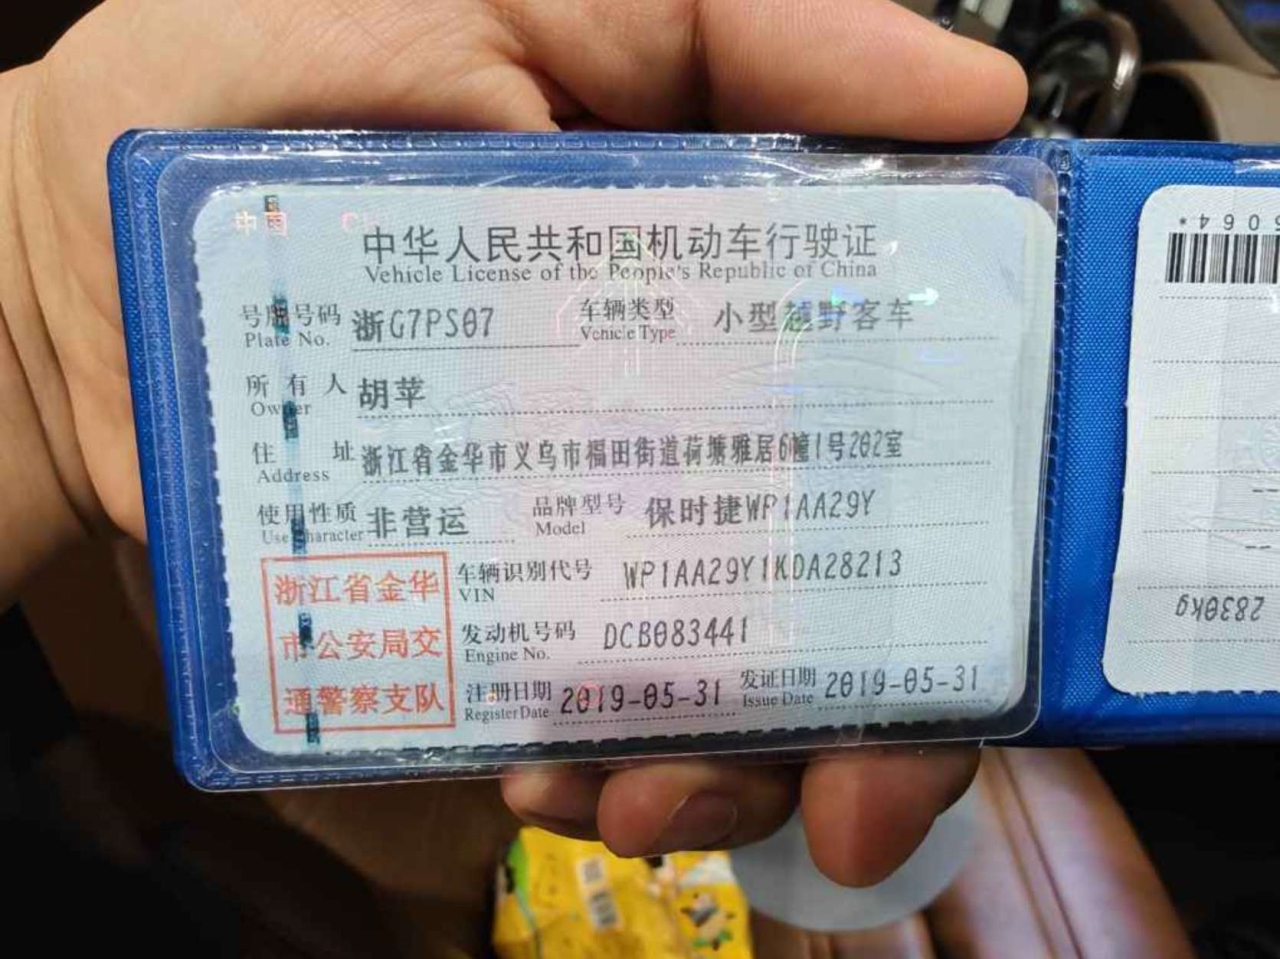 中国
中华人民共和国机动车行驶证
Vehicle License of the People's Republic of China
号牌号码 浙G7PS07 车辆类型 小型越野客车
Plate No. Vehicle Type
所有人 胡苹
Owner
住址 浙江省金华市义乌市福田街道荷塘雅居6幢1号202室
Address
使用性质 非营运 品牌型号 保时捷WP1AA29Y
Use Character Model
浙江省金华
市公安局交
通警察支队
车辆识别代号 WP1AA29Y1KDA28213
VIN
发动机号码 DCB083441
Engine No.
注册日期 2019-05-31 发证日期 2019-05-31
Register Date Issue Date
2830kg